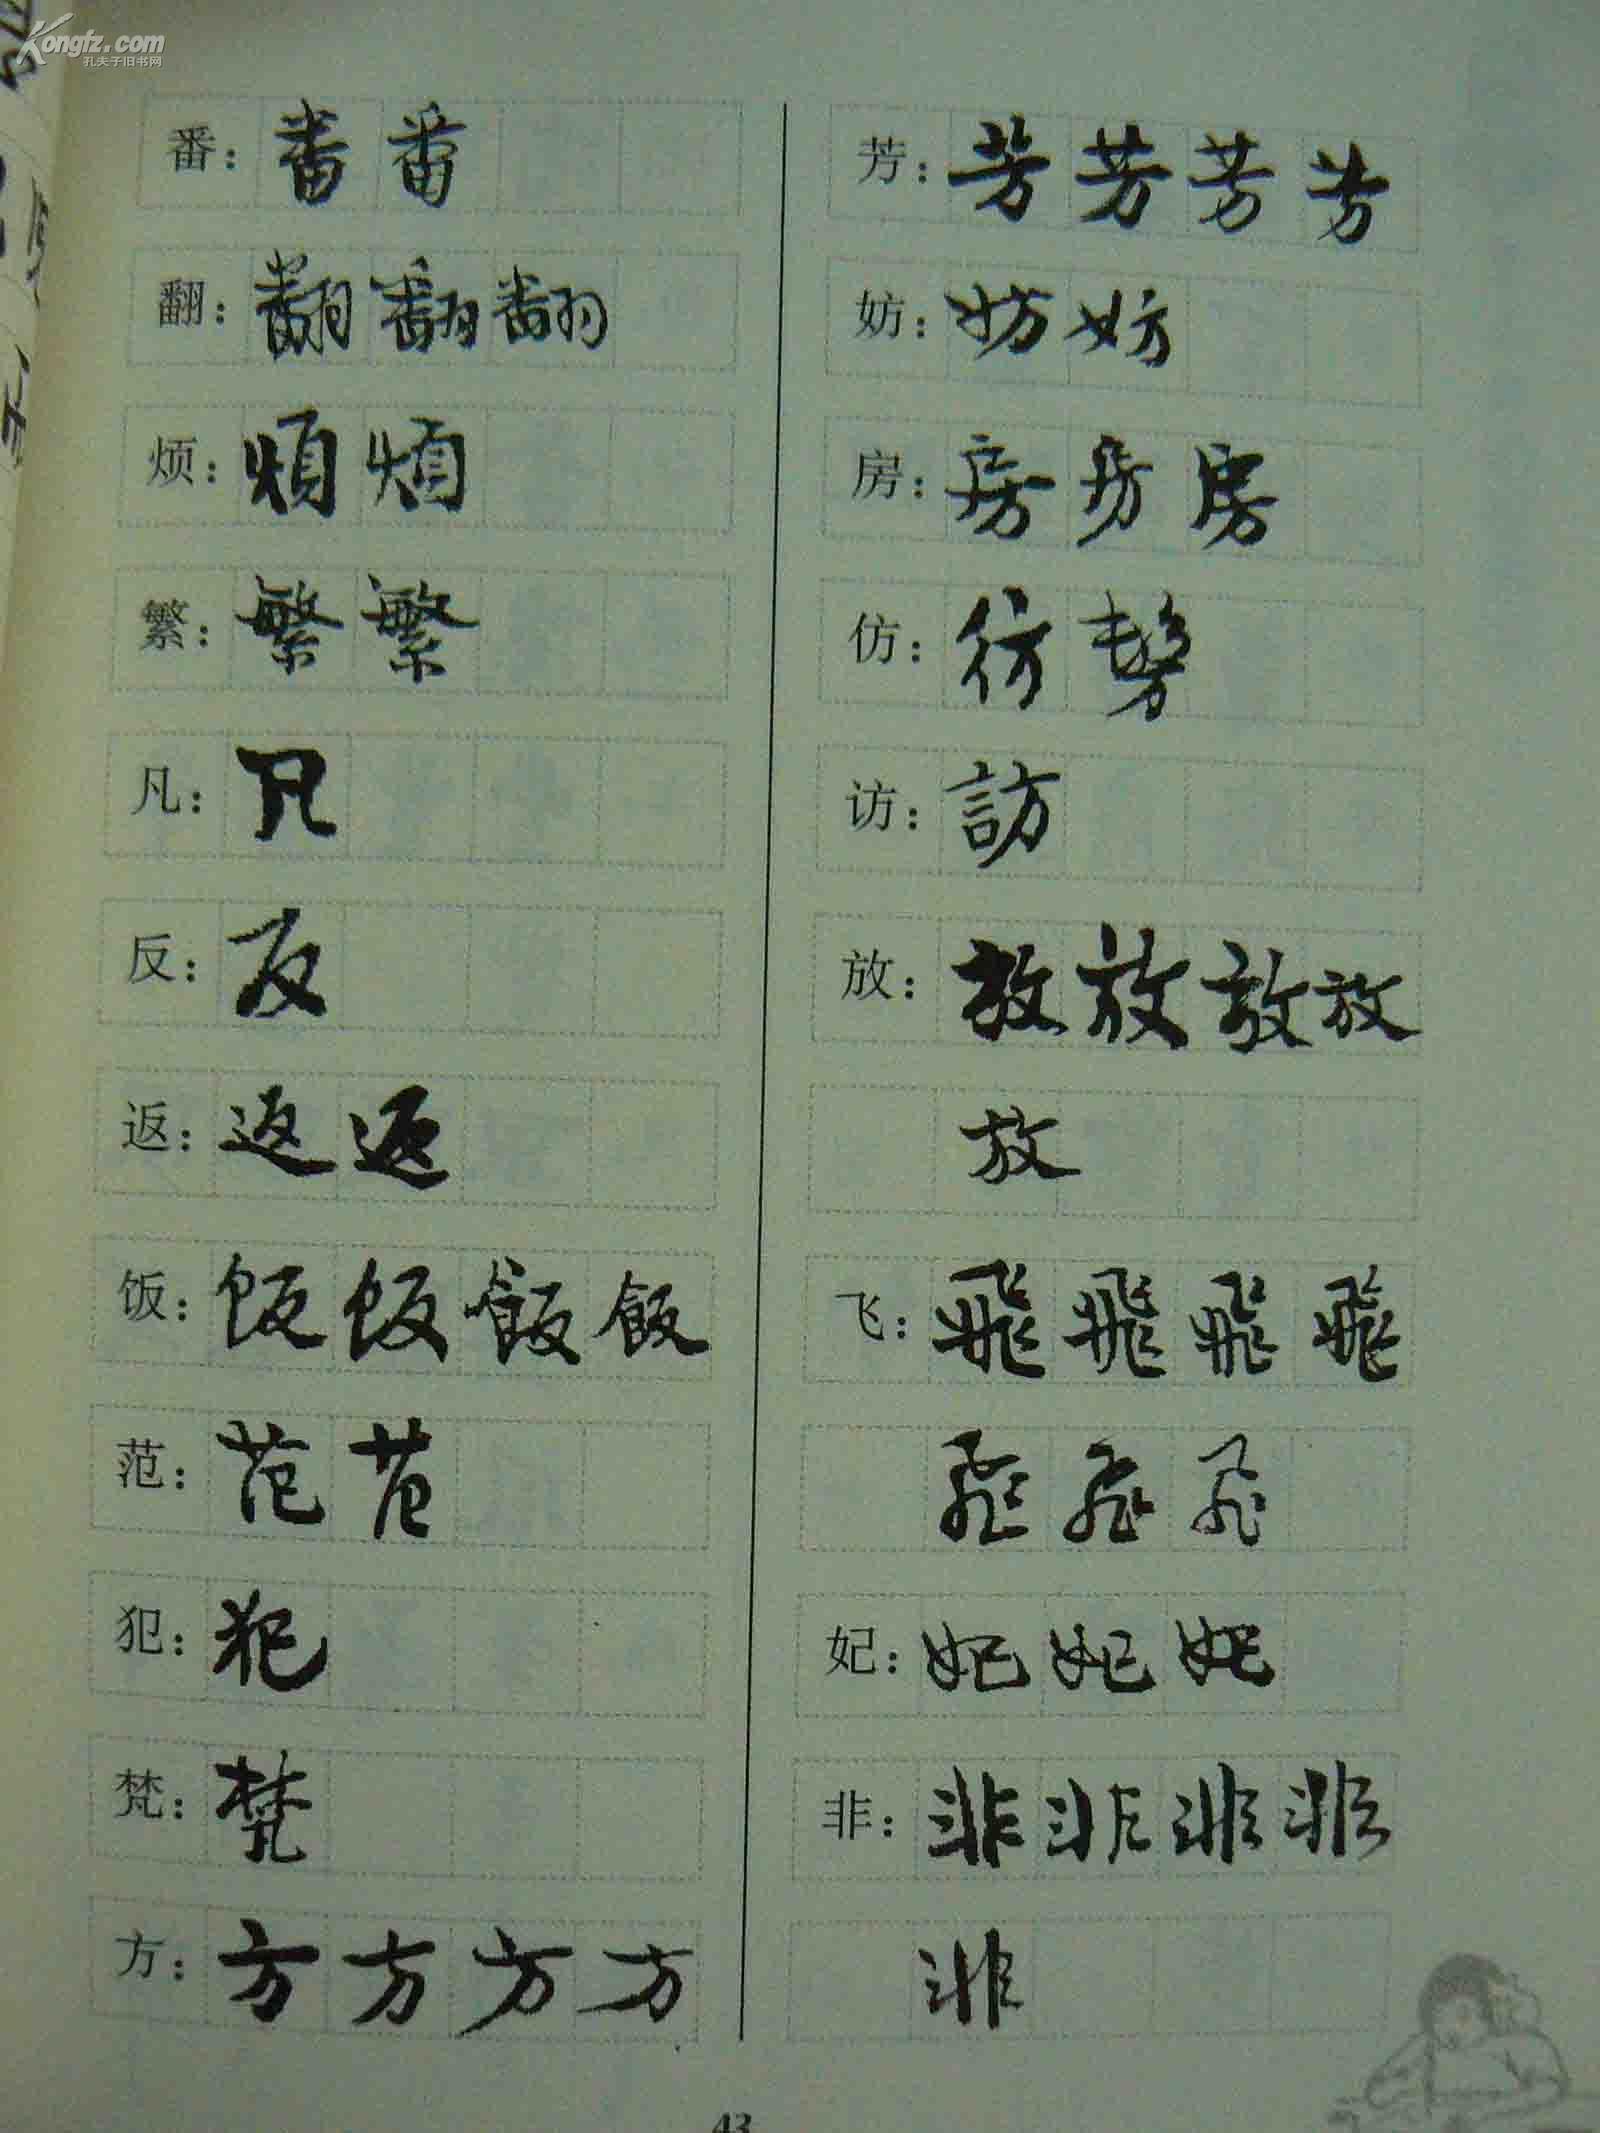 Kongfz.com
孔夫子旧书网
番：番 番
翻：翻 翻 翻
烦：煩 煩
繁：繁 繁
凡：凡
反：反
返：返 返
饭：飯 飯 飯 飯
范：范 范
犯：犯
梵：梵
方：方 方 方 方
芳：芳 芳 芳 芳
妨：妨 妨
房：房 房 房
仿：彷 髣
访：訪
放：放 放 放 放
放
飞：飛 飛 飛 飛
飛 飛 飛
妃：妃 妃 妃
非：非 非 非 非
非
43